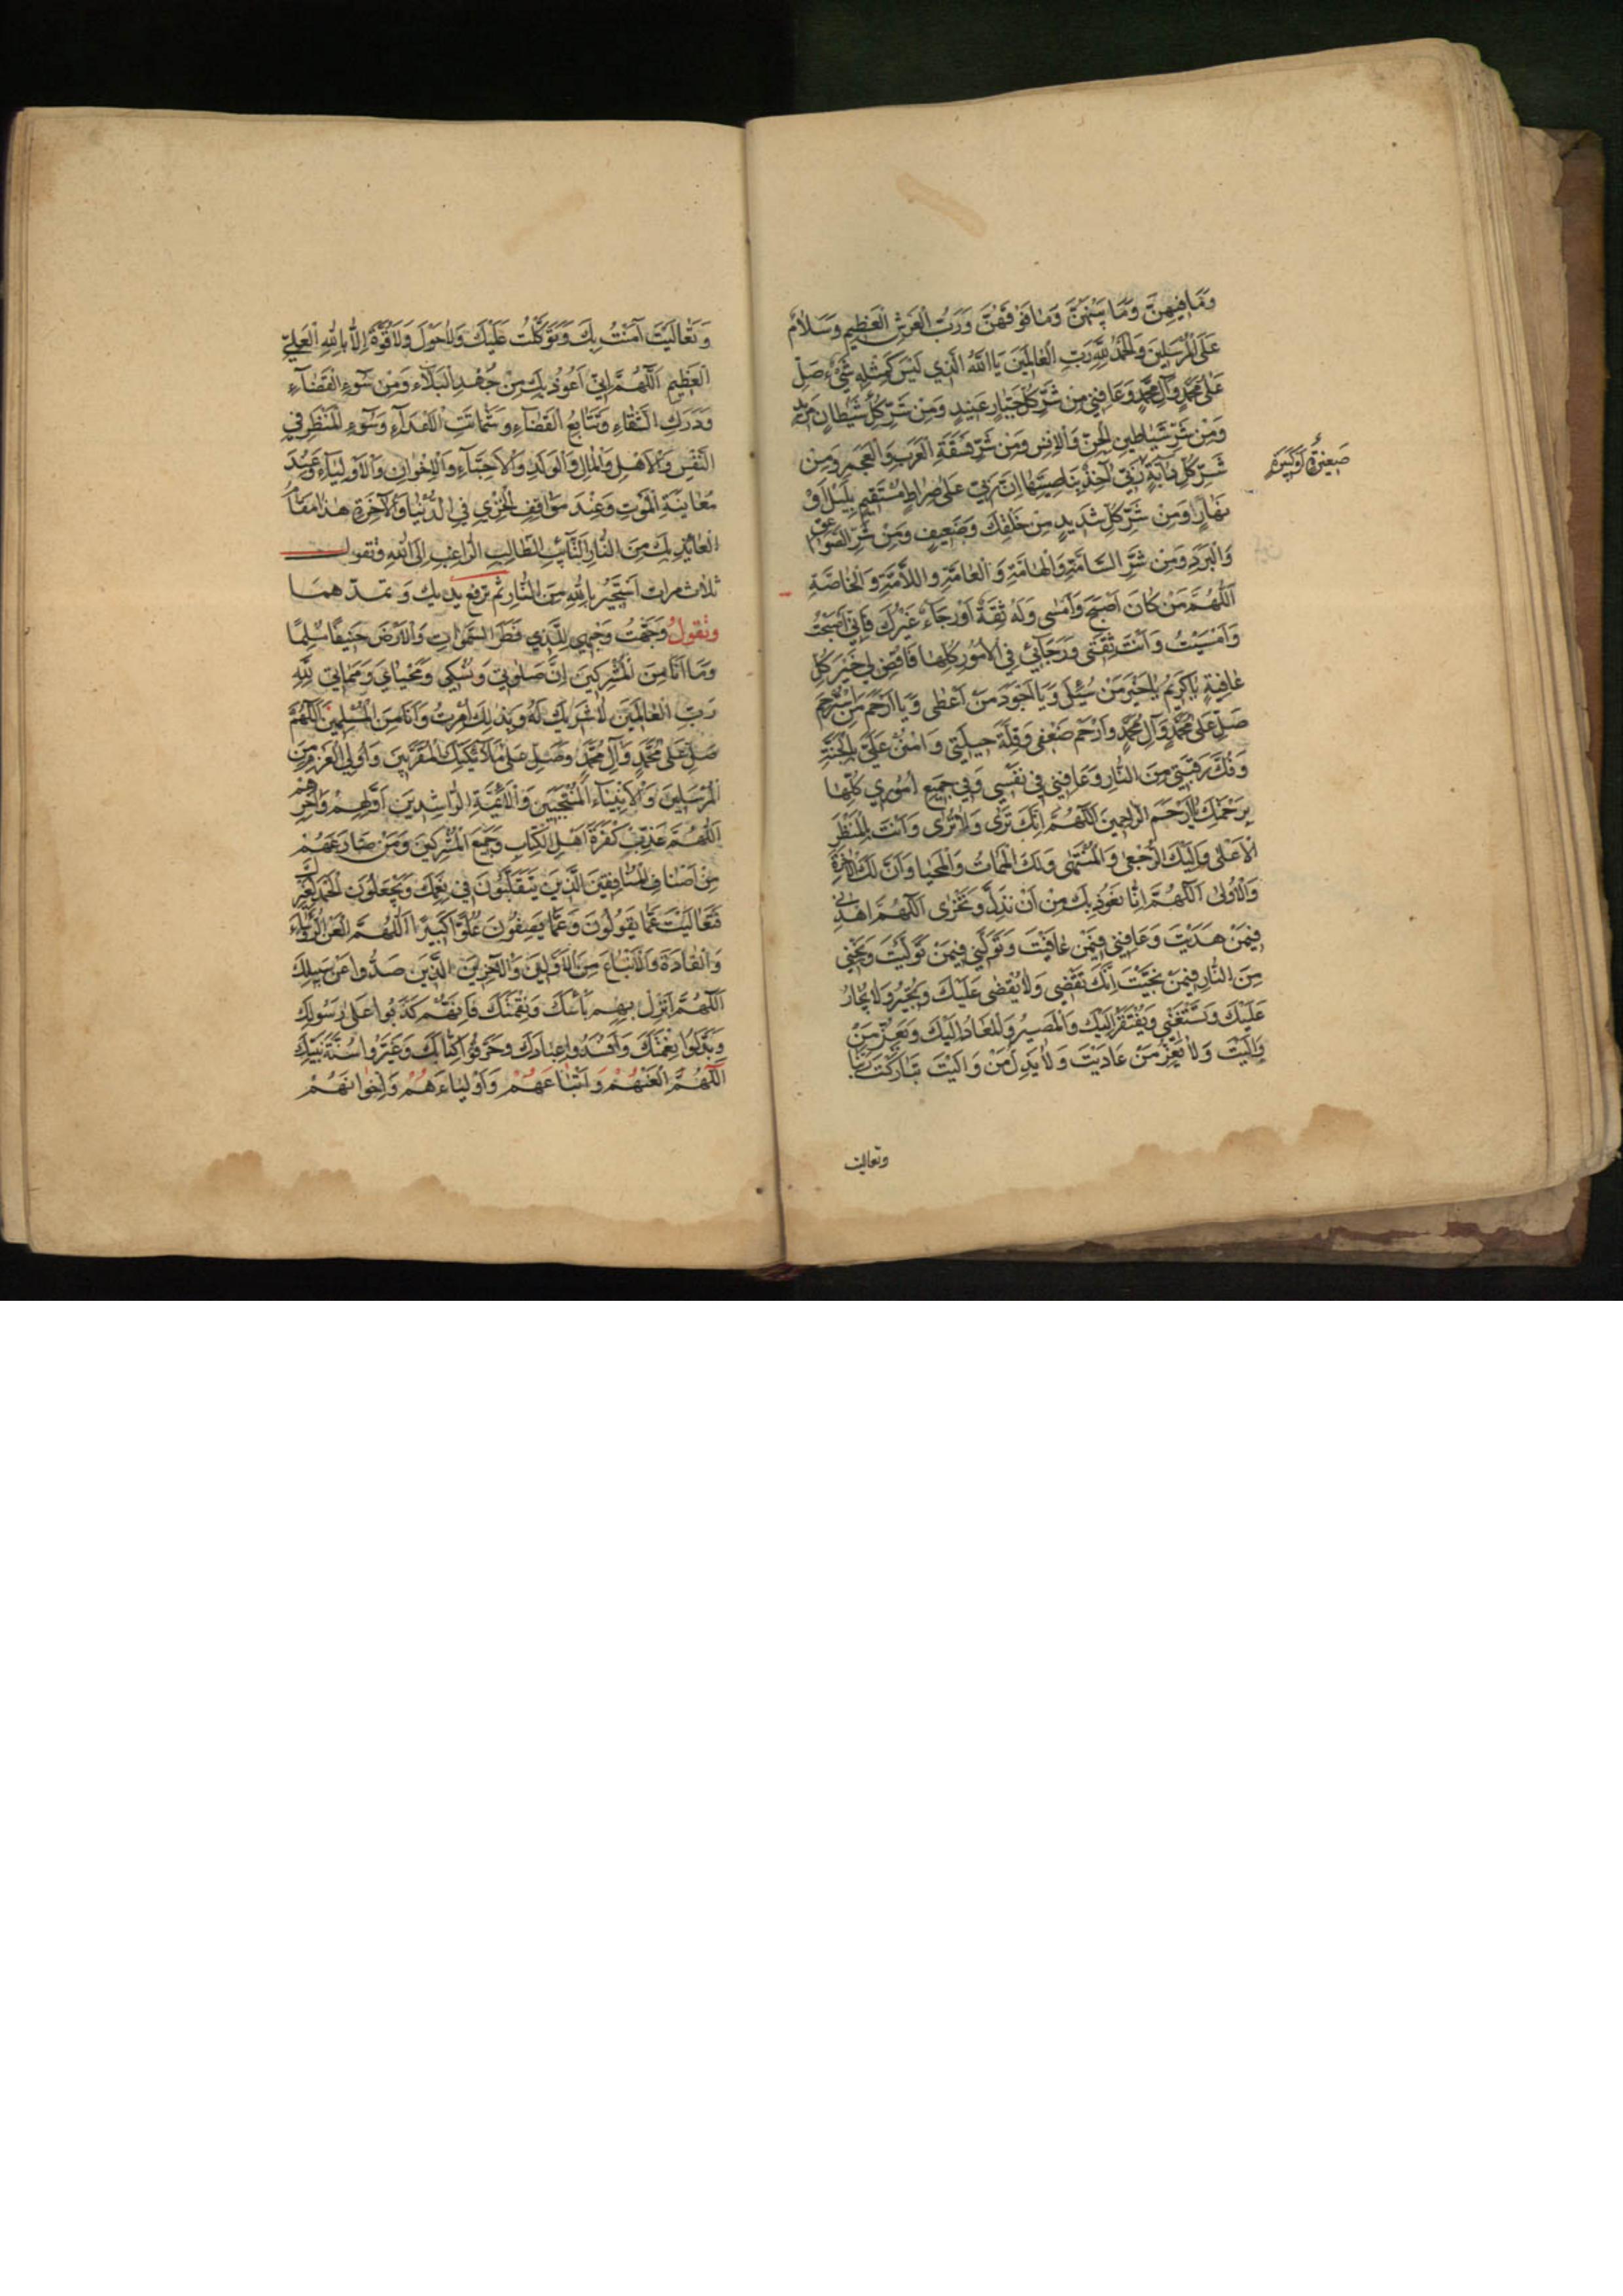 وَمَا فِيهِنَّ وَمَا بَيْنَهُنَّ وَمَا فَوْقَهُنَّ وَرَبِّ الْعَرْشِ الْعَظِيمِ وَسَلَامٌ
عَلَى الْمُرْسَلِينَ وَالْحَمْدُ لِلَّهِ رَبِّ الْعَالَمِينَ يَا اَللَّهُ الَّذِي لَيْسَ كَمِثْلِهِ شَيْءٌ صَلِّ
عَلَى مُحَمَّدٍ وَآلِ مُحَمَّدٍ وَعَافِنِي مِنْ شَرِّ كُلِّ جَبَّارٍ عَنِيدٍ وَمِنْ شَرِّ كُلِّ شَيْطَانٍ مَرِيدٍ
وَمِنْ شَرِّ شَيَاطِينِ الْجِنِّ وَالْاِنْسِ وَمِنْ شَرِّ فَسَقَةِ الْعَرَبِ وَالْعَجَمِ وَمِنْ
شَرِّ كُلِّ دَابَّةٍ رَبِّي آخِذٌ بِنَاصِيَتِهَا اِنَّ رَبِّي عَلَى صِرَاطٍ مُسْتَقِيمٍ بِلَيْلٍ اَوْ
صَغِيرَةٍ اَوْ كَبِيرَةٍ
نَهَارٍ وَمِنْ شَرِّ كُلِّ شَدِيدٍ مِنْ خَلْقِكَ وَضَعِيفٍ وَمِنْ شَرِّ الصَّوَاعِقِ
وَالْبَرَدِ وَمِنْ شَرِّ السَّامَّةِ وَالْهَامَّةِ وَالْعَامَّةِ وَاللَّامَّةِ وَالْخَاصَّةِ
اَللَّهُمَّ مَنْ كَانَ اَصْبَحَ وَاَمْسَى وَلَهُ ثِقَةٌ اَوْ رَجَاءٌ غَيْرُكَ فَاِنِّي اَصْبَحْتُ
وَاَمْسَيْتُ وَاَنْتَ ثِقَتِي وَرَجَائِي فِي الْاُمُورِ كُلِّهَا فَاقْضِ لِي خَيْرَ كُلِّ
عَافِيَةٍ يَا كَرِيمُ يَا خَيْرَ مَنْ سُئِلَ وَيَا اَجْوَدَ مَنْ اَعْطَى وَيَا اَرْحَمَ مَنِ اسْتُرْحِمَ
صَلِّ عَلَى مُحَمَّدٍ وَآلِ مُحَمَّدٍ وَارْحَمْ ضَعْفِي وَقِلَّةَ حِيلَتِي وَامْنُنْ عَلَيَّ بِالْجَنَّةِ
وَفُكَّ رَقَبَتِي مِنَ النَّارِ وَعَافِنِي فِي نَفْسِي وَفِي جَمِيعِ اُمُورِي كُلِّهَا
بِرَحْمَتِكَ يَا اَرْحَمَ الرَّاحِمِينَ اَللَّهُمَّ اِنَّكَ تَرَى وَلَا تُرَى وَاَنْتَ بِالْمَنْظَرِ
الْاَعْلَى وَاِلَيْكَ الرُّجْعَى وَالْمُنْتَهَى وَلَكَ الْمَمَاتُ وَالْمَحْيَا وَاَنَّ لَكَ الْآخِرَةَ
وَالْاُولَى اَللَّهُمَّ اِنَّا نَعُوذُ بِكَ مِنْ اَنْ نَذِلَّ وَنَخْزَى اَللَّهُمَّ اهْدِنِي
فِيمَنْ هَدَيْتَ وَعَافِنِي فِيمَنْ عَافَيْتَ وَتَوَلَّنِي فِيمَنْ تَوَلَّيْتَ وَنَجِّنِي
مِنَ النَّارِ فِيمَنْ نَجَّيْتَ اِنَّكَ تَقْضِي وَلَا يُقْضَى عَلَيْكَ وَتُجِيرُ وَلَا يُجَارُ
عَلَيْكَ وَتَسْتَغْنِي وَيُفْتَقَرُ اِلَيْكَ وَالْمَصِيرُ وَالْمَعَادُ اِلَيْكَ وَتُعِزُّ مَنْ
وَالَيْتَ وَلَا يَعِزُّ مَنْ عَادَيْتَ وَلَا يَذِلُّ مَنْ وَالَيْتَ تَبَارَكْتَ رَبَّنَا
وتعاليت
وَتَعَالَيْتَ آمَنْتُ بِكَ وَتَوَكَّلْتُ عَلَيْكَ وَلَا حَوْلَ وَلَا قُوَّةَ اِلَّا بِاللَّهِ الْعَلِيِّ
الْعَظِيمِ اَللَّهُمَّ اِنِّي اَعُوذُ بِكَ مِنْ جُهْدِ الْبَلَاءِ وَمِنْ سُوءِ الْقَضَاءِ
وَدَرَكِ الشَّقَاءِ وَتَتَابُعِ الْفَضَاءِ وَشَمَاتَةِ الْاَعْدَاءِ وَسُوءِ الْمَنْظَرِ فِي
النَّفْسِ وَالْاَهْلِ وَالْمَالِ وَالْوَلَدِ وَالْاَحِبَّاءِ وَالْاِخْوَانِ وَالْاَوْلِيَاءِ وَعِنْدَ
مُعَايَنَةِ الْمَوْتِ وَعِنْدَ مَوَاقِفِ الْخِزْيِ فِي الدُّنْيَا وَالْآخِرَةِ هَذَا مَقَامُ
الْعَائِذِ بِكَ مِنَ النَّارِ التَّائِبِ الطَّالِبِ الرَّاغِبِ اِلَى اللَّهِ وَتقول
ثلاث مرات اَسْتَجِيرُ بِاللَّهِ مِنَ النَّارِ ثم ترفع يديك وتمدّهما
وتقولُ وَجَّهْتُ وَجْهِيَ لِلَّذِي فَطَرَ السَّمَوَاتِ وَالْاَرْضَ حَنِيفًا مُسْلِمًا
وَمَا اَنَا مِنَ الْمُشْرِكِينَ اِنَّ صَلَوتِي وَنُسُكِي وَمَحْيَايَ وَمَمَاتِي لِلَّهِ
رَبِّ الْعَالَمِينَ لَا شَرِيكَ لَهُ وَبِذَلِكَ اُمِرْتُ وَاَنَا مِنَ الْمُسْلِمِينَ اَللَّهُمَّ
صَلِّ عَلَى مُحَمَّدٍ وَآلِ مُحَمَّدٍ وَصَلِّ عَلَى مَلَائِكَتِكَ الْمُقَرَّبِينَ وَاُولِي الْعَزْمِ مِنَ
الْمُرْسَلِينَ وَالْاَنْبِيَاءِ الْمُنْتَجَبِينَ وَالْاَئِمَّةِ الرَّاشِدِينَ اَوَّلِهِمْ وَآخِرِهِمْ
اَللَّهُمَّ عَذِّبْ كَفَرَةَ اَهْلِ الْكِتَابِ وَجَمِيعَ الْمُشْرِكِينَ وَمَنْ ضَارَعَهُمْ
مِنْ اَصْنَافِ الْمُنَافِقِينَ الَّذِينَ يَتَقَلَّبُونَ فِي نِعَمِكَ وَيَجْعَلُونَ الْحَمْدَ لِغَيْرِكَ
فَتَعَالَيْتَ عَمَّا يَقُولُونَ وَعَمَّا يَصِفُونَ عُلُوًّا كَبِيرًا اَللَّهُمَّ الْعَنِ الرُّؤَسَاءَ
وَالْقَادَةَ وَالْاَتْبَاعَ مِنَ الْاَوَّلِينَ وَالْآخِرِينَ الَّذِينَ صَدُّوا عَنْ سَبِيلِكَ
اَللَّهُمَّ اَنْزِلْ بِهِمْ بَأْسَكَ وَنَقِمَتَكَ فَاِنَّهُمْ كَذَبُوا عَلَى رَسُولِكَ
وَبَدَّلُوا نِعْمَتَكَ وَاَفْسَدُوا عِبَادَكَ وَحَرَّفُوا كِتَابَكَ وَغَيَّرُوا سُنَّةَ نَبِيِّكَ
اَللَّهُمَّ الْعَنْهُمْ وَاَتْبَاعَهُمْ وَاَوْلِيَاءَهُمْ وَاِخْوَانَهُمْ